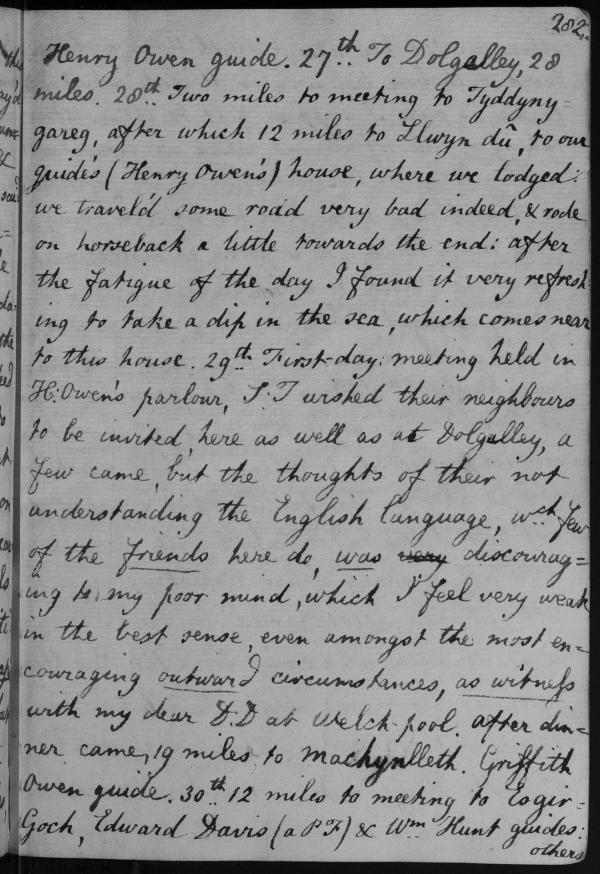 282
Henry Owen guide. 27th.. To Dolgelley, 28
miles. 28th.. Two miles to meeting to Tyddyny=
gareg, after which 12 miles to Llwyn dû, to our
guide's (Henry Owen's) house, where we lodged:
we travel'd some road very bad indeed, & rode
on horseback a little towards the end: after
the fatigue of the day I found it very refresh-
ing to take a dip in the sea, which comes near
to this house. 29th.. First-day: meeting held in
H: Owen's parlour, S:T wished their neighbours
to be invited, here as well as at Dolgelley, a
few came, but the thoughts of their not
understanding the English language, wch.. few
of the friends here do, was very discourag=
ing to my poor mind, which I feel very weak
in the best sense, even amongst the most en=
couraging outward circumstances, as witness
with my dear D:D at Welch-pool. After din=
ner came, 19 miles to Machynlleth. Griffith
Owen guide. 30th 12 miles to meeting to Esgir-
Goch, Edward Davis (a P F) & Wm.. Hunt guides:
others